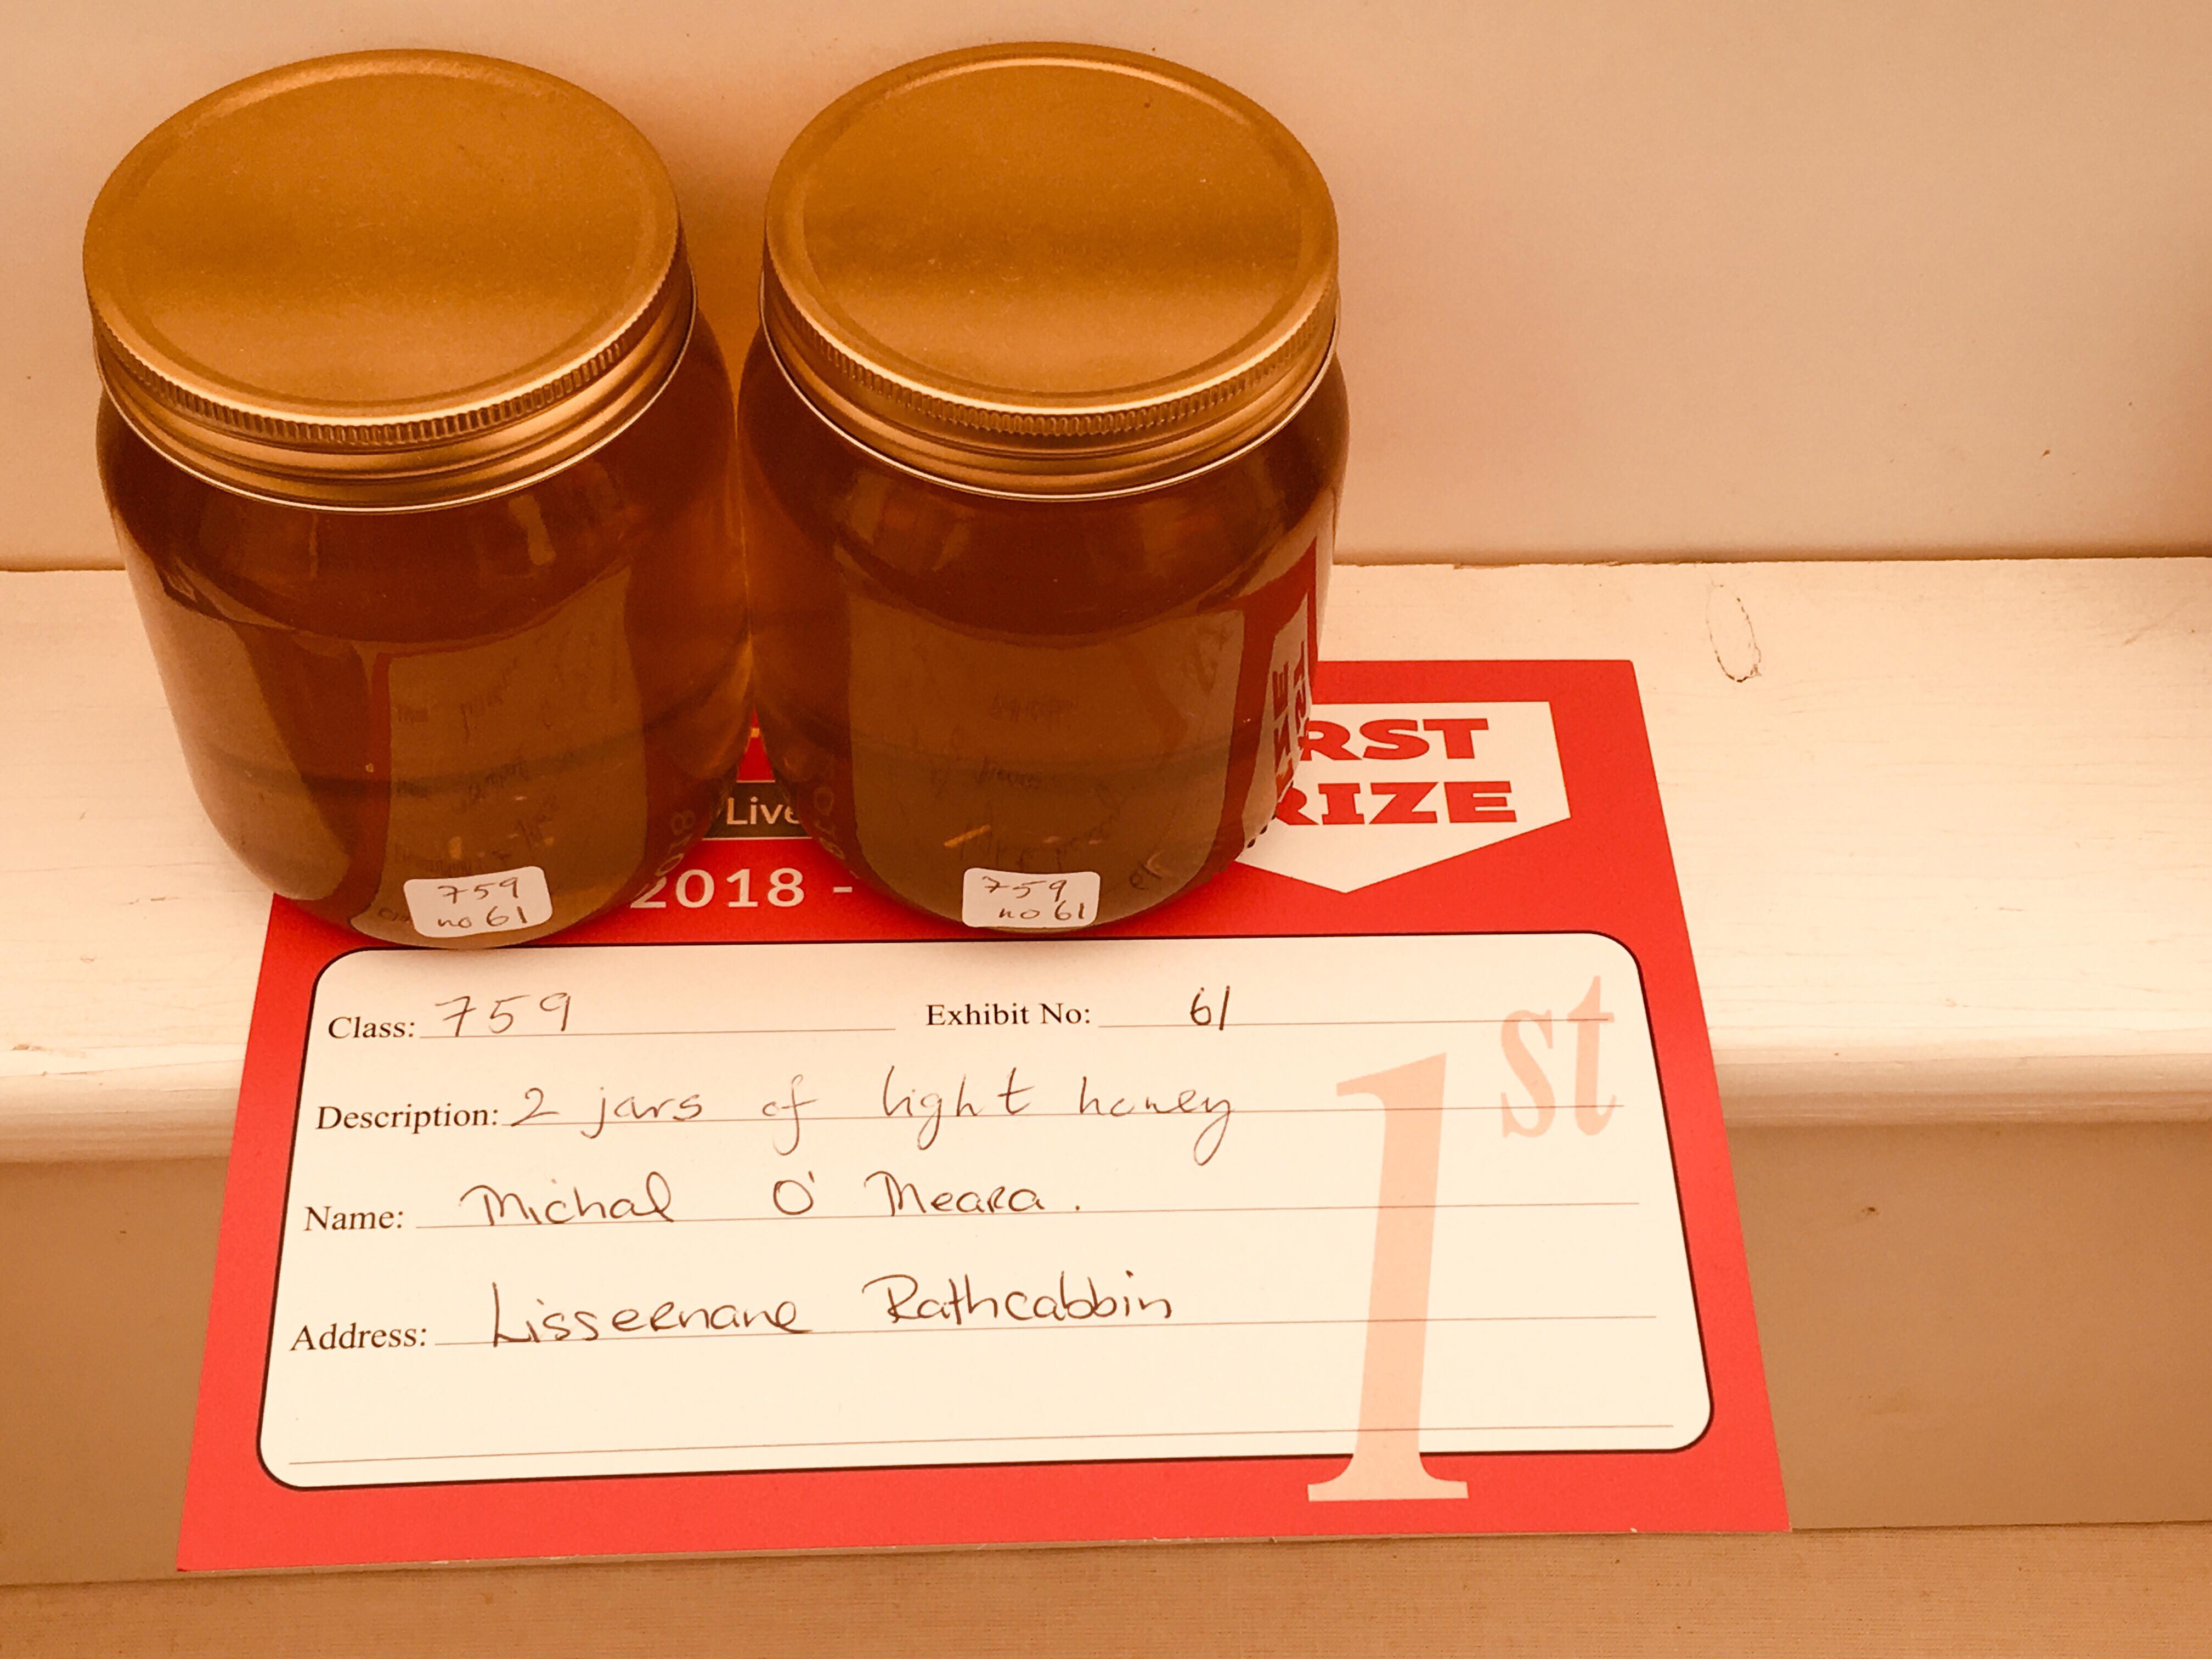 RST
RIZE
Live
2018 -
759
no 61
759
no 61
Class: 759 Exhibit No: 61
1st
Description: 2 jars of light honey
Name: Michal O' Meara.
Address: Lisseernane Rathcabbin